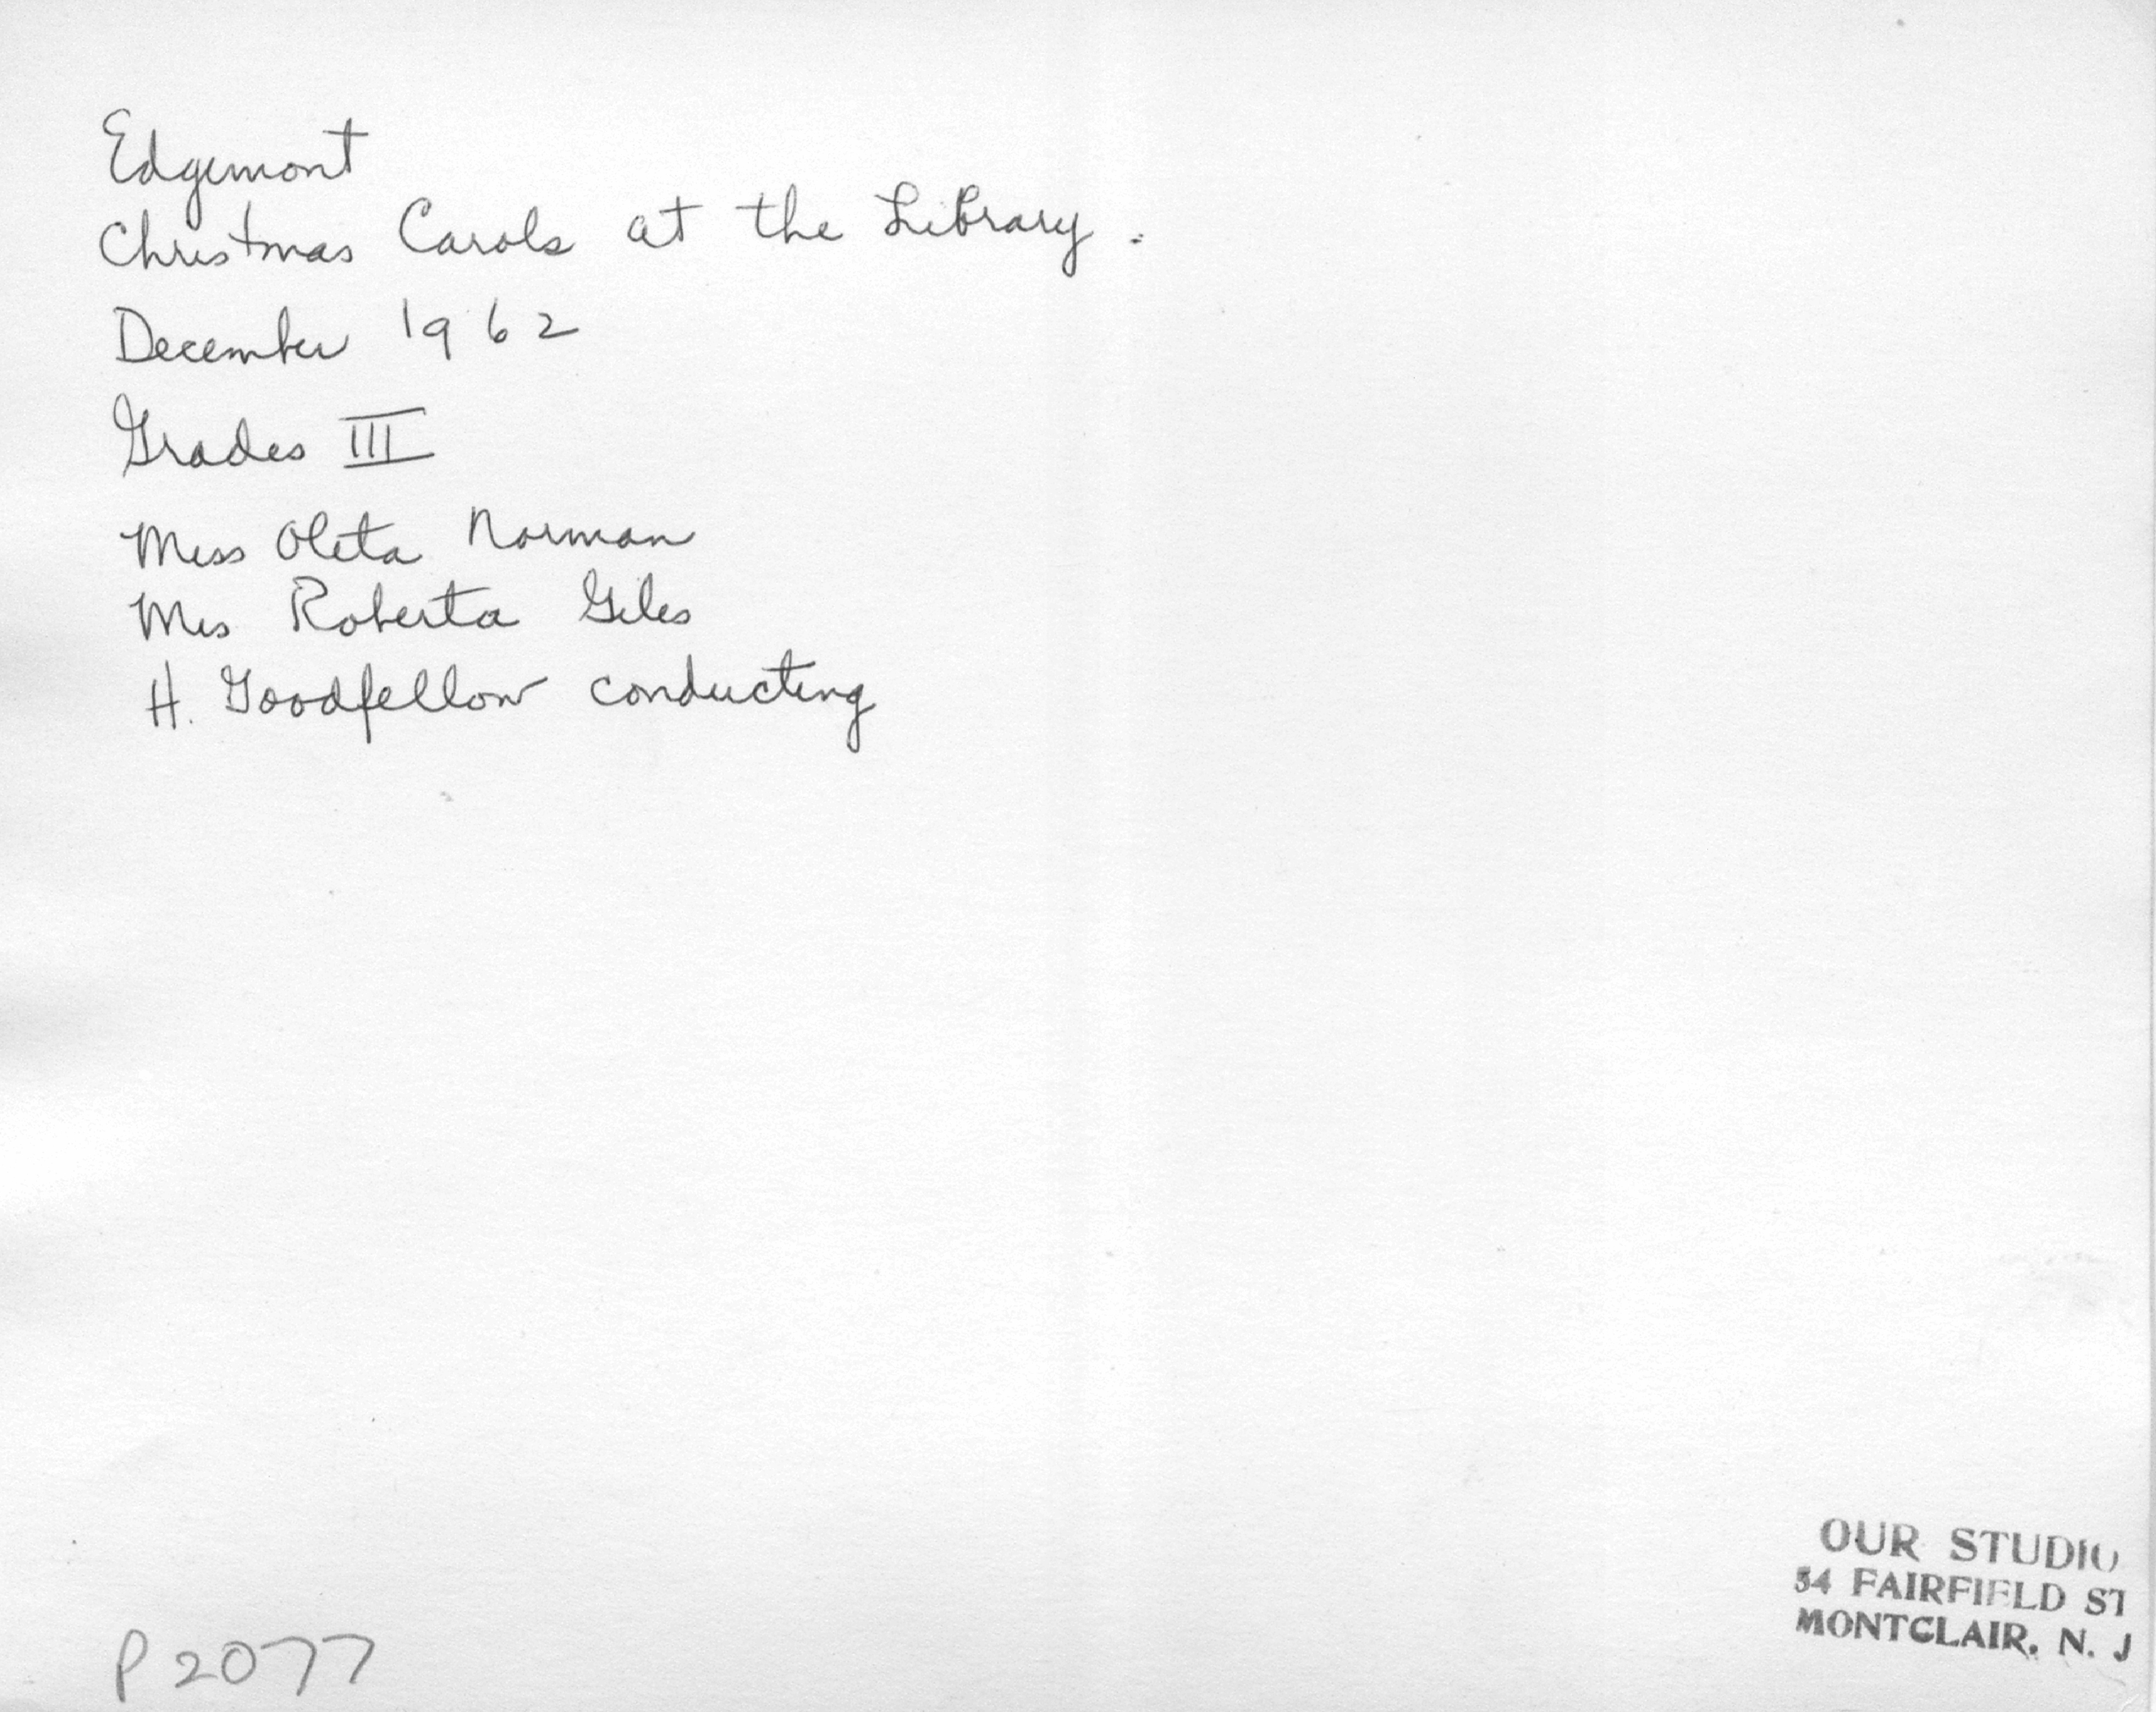 Edgemont
Christmas Carols at the Library.
December 1962
Grades III
Miss Oleta Norman
Mrs Roberta Giles
H. Goodfellow conducting
P2077
OUR STUDIO
54 FAIRFIELD ST
MONTCLAIR, N. J